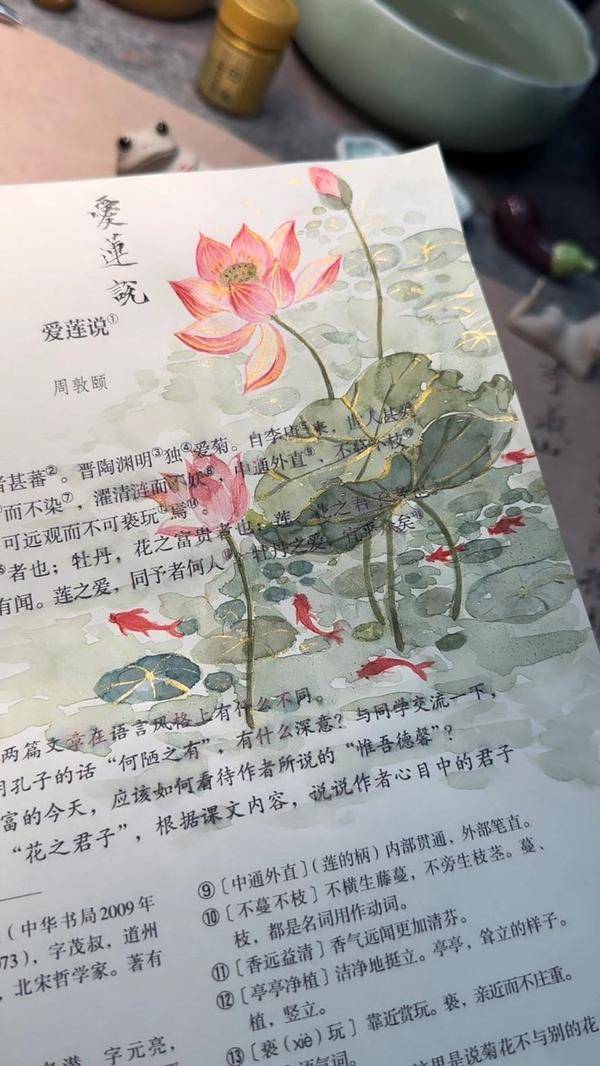 愛蓮說
爱莲说①
周敦颐
甚蕃②。晋陶渊明③独④爱菊。自李唐⑤来，世人甚爱
而不染⑦，濯清涟而不妖⑧，中通外直⑨，不蔓不枝⑩
可远观而不可亵玩
者也；牡丹，花之富贵者也；莲，花之君
有闻。莲之爱，同予者何人？牡丹之爱，宜乎众矣
两篇文章在语言风格上有什么不同。
孔子的话“何陋之有”，有什么深意？与同学交流一下，
富的今天，应该如何看待作者所说的“惟吾德馨”？
“花之君子”，根据课文内容，说说作者心目中的君子
（中华书局2009年
073），字茂叔，道州
，北宋哲学家。著有
字元亮，
⑨〔中通外直〕（莲的柄）内部贯通，外部笔直。
⑩〔不蔓不枝〕不横生藤蔓，不旁生枝茎。蔓、
枝，都是名词用作动词。
⑪〔香远益清〕香气远闻更加清芬。
⑫〔亭亭净植〕洁净地挺立。亭亭，耸立的样子。
植，竖立。
⑬〔亵（xiè）玩〕靠近赏玩。亵，亲近而不庄重。
语气词。
这里是说菊花不与别的花